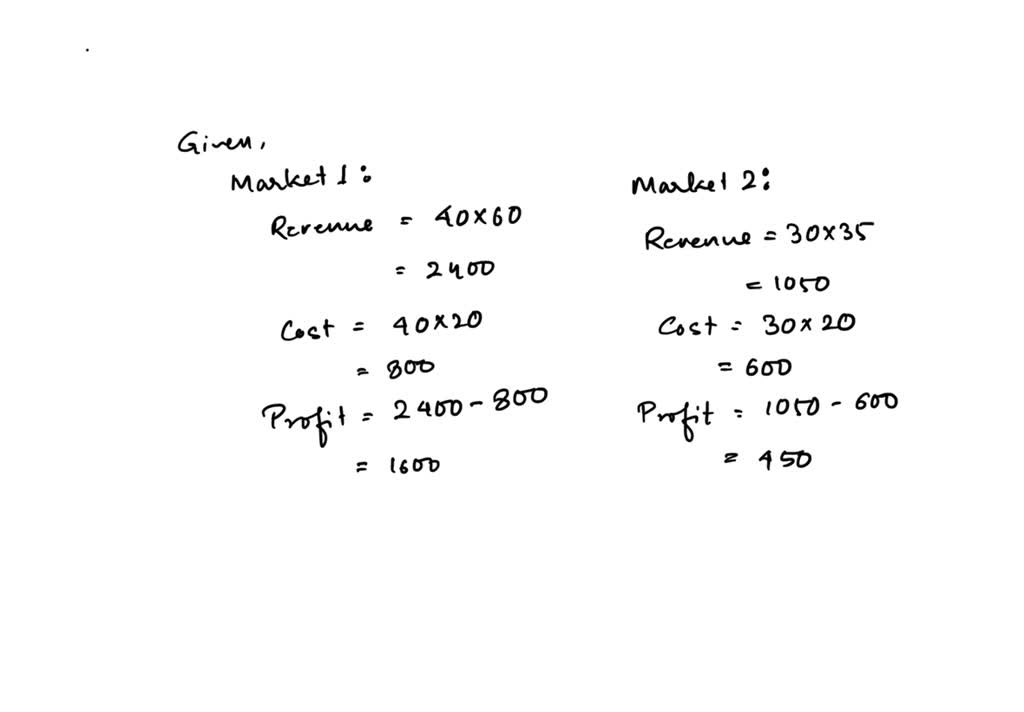 Given,
Market 1:
Revenue = 40×60
= 2400
Cost = 40×20
= 800
Profit = 2400 - 800
= 1600
Market 2:
Revenue = 30×35
= 1050
Cost = 30×20
= 600
Profit = 1050 - 600
= 450